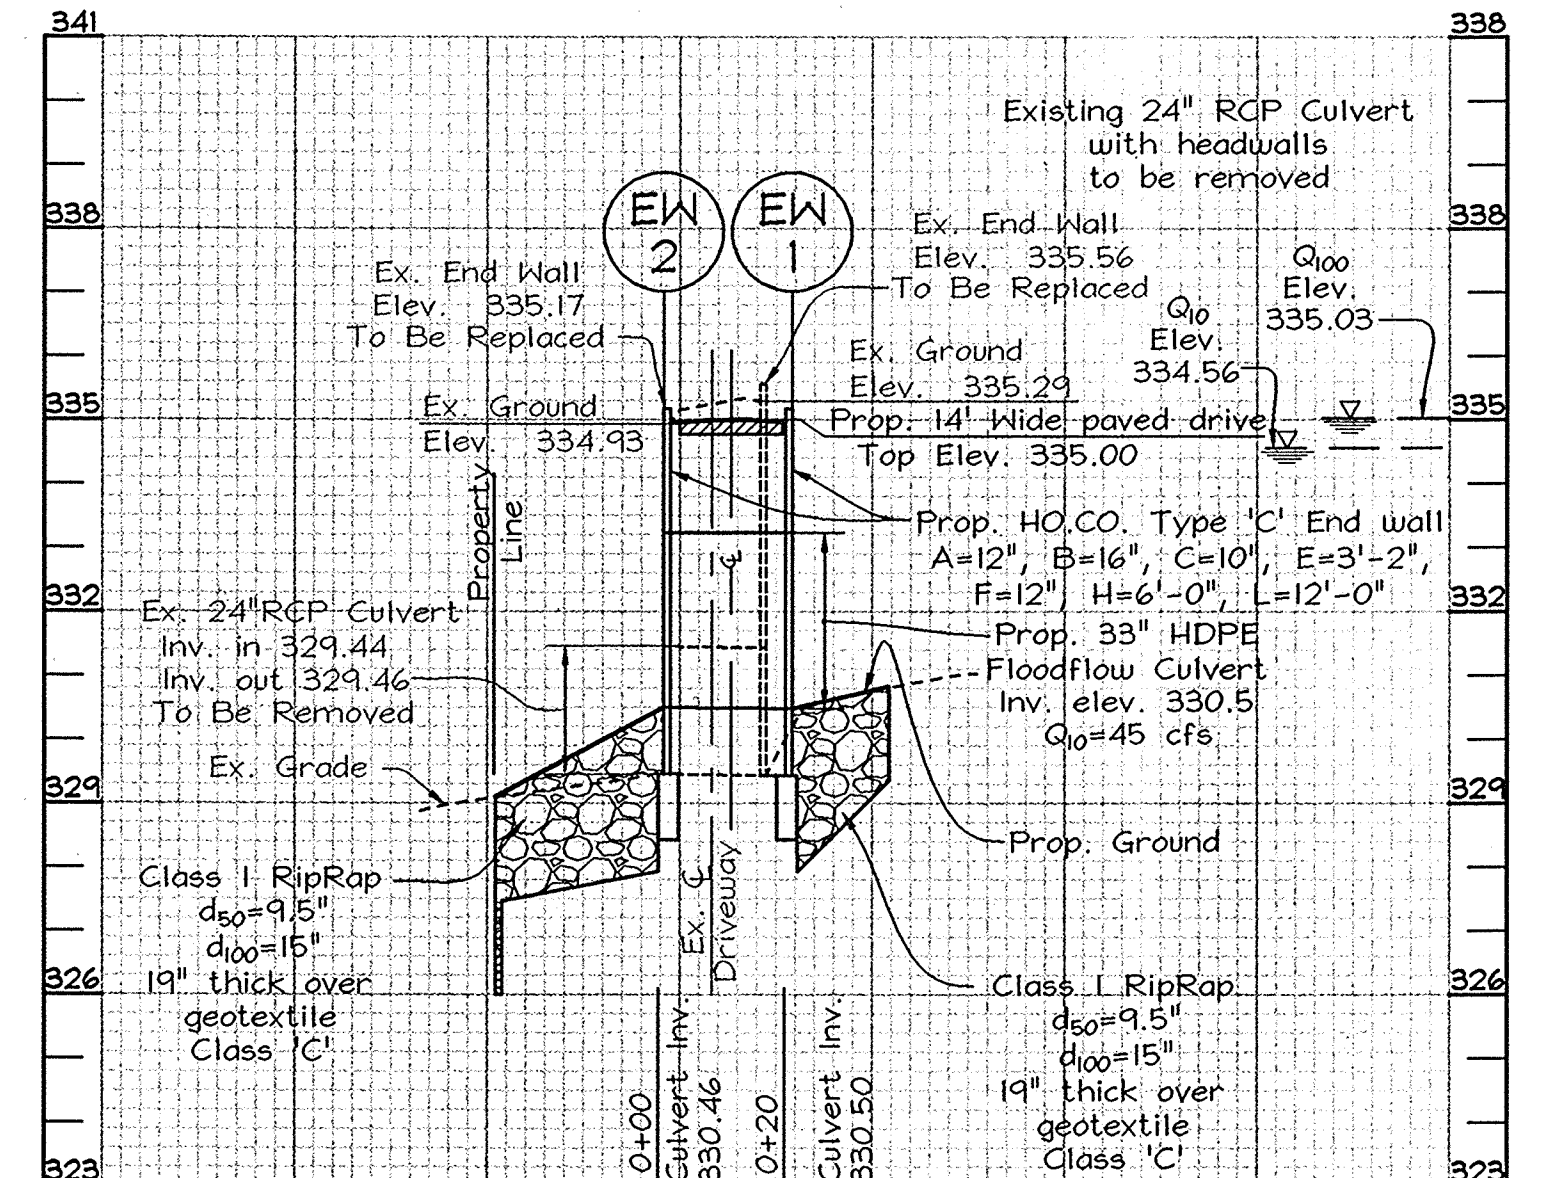 341
338
335
332
329
326
323
338
338
335
332
329
326
323
Existing 24" RCP Culvert
with headwalls
to be removed
EW
2
EW
1
Ex. End Wall
Elev. 335.17
To Be Replaced
Ex. End Wall
Elev. 335.56
To Be Replaced
Q100
Elev.
335.03
Q10
Elev.
334.56
Ex. Ground
Elev. 335.29
Ex. Ground
Elev. 334.93
Prop. 14' Wide paved drive
Top Elev. 335.00
Property
Line
Prop. HO.CO. Type 'C' End wall
A=12", B=16", C=10", E=3'-2",
F=12", H=6'-0", L=12'-0"
Prop. 33" HDPE
Floodflow Culvert
Inv. elev. 330.5
Q10=45 cfs
Ex. 24"RCP Culvert
Inv. in 329.44
Inv. out 329.46
To Be Removed
Ex. Grade
℄
Prop. Ground
Class I RipRap
d50=9.5"
d100=15"
19" thick over
geotextile
Class 'C'
Ex. ℄
Driveway
Class I RipRap
d50=9.5"
d100=15"
19" thick over
geotextile
Class 'C'
0+00
Culvert Inv.
330.46
0+20
Culvert Inv.
330.50